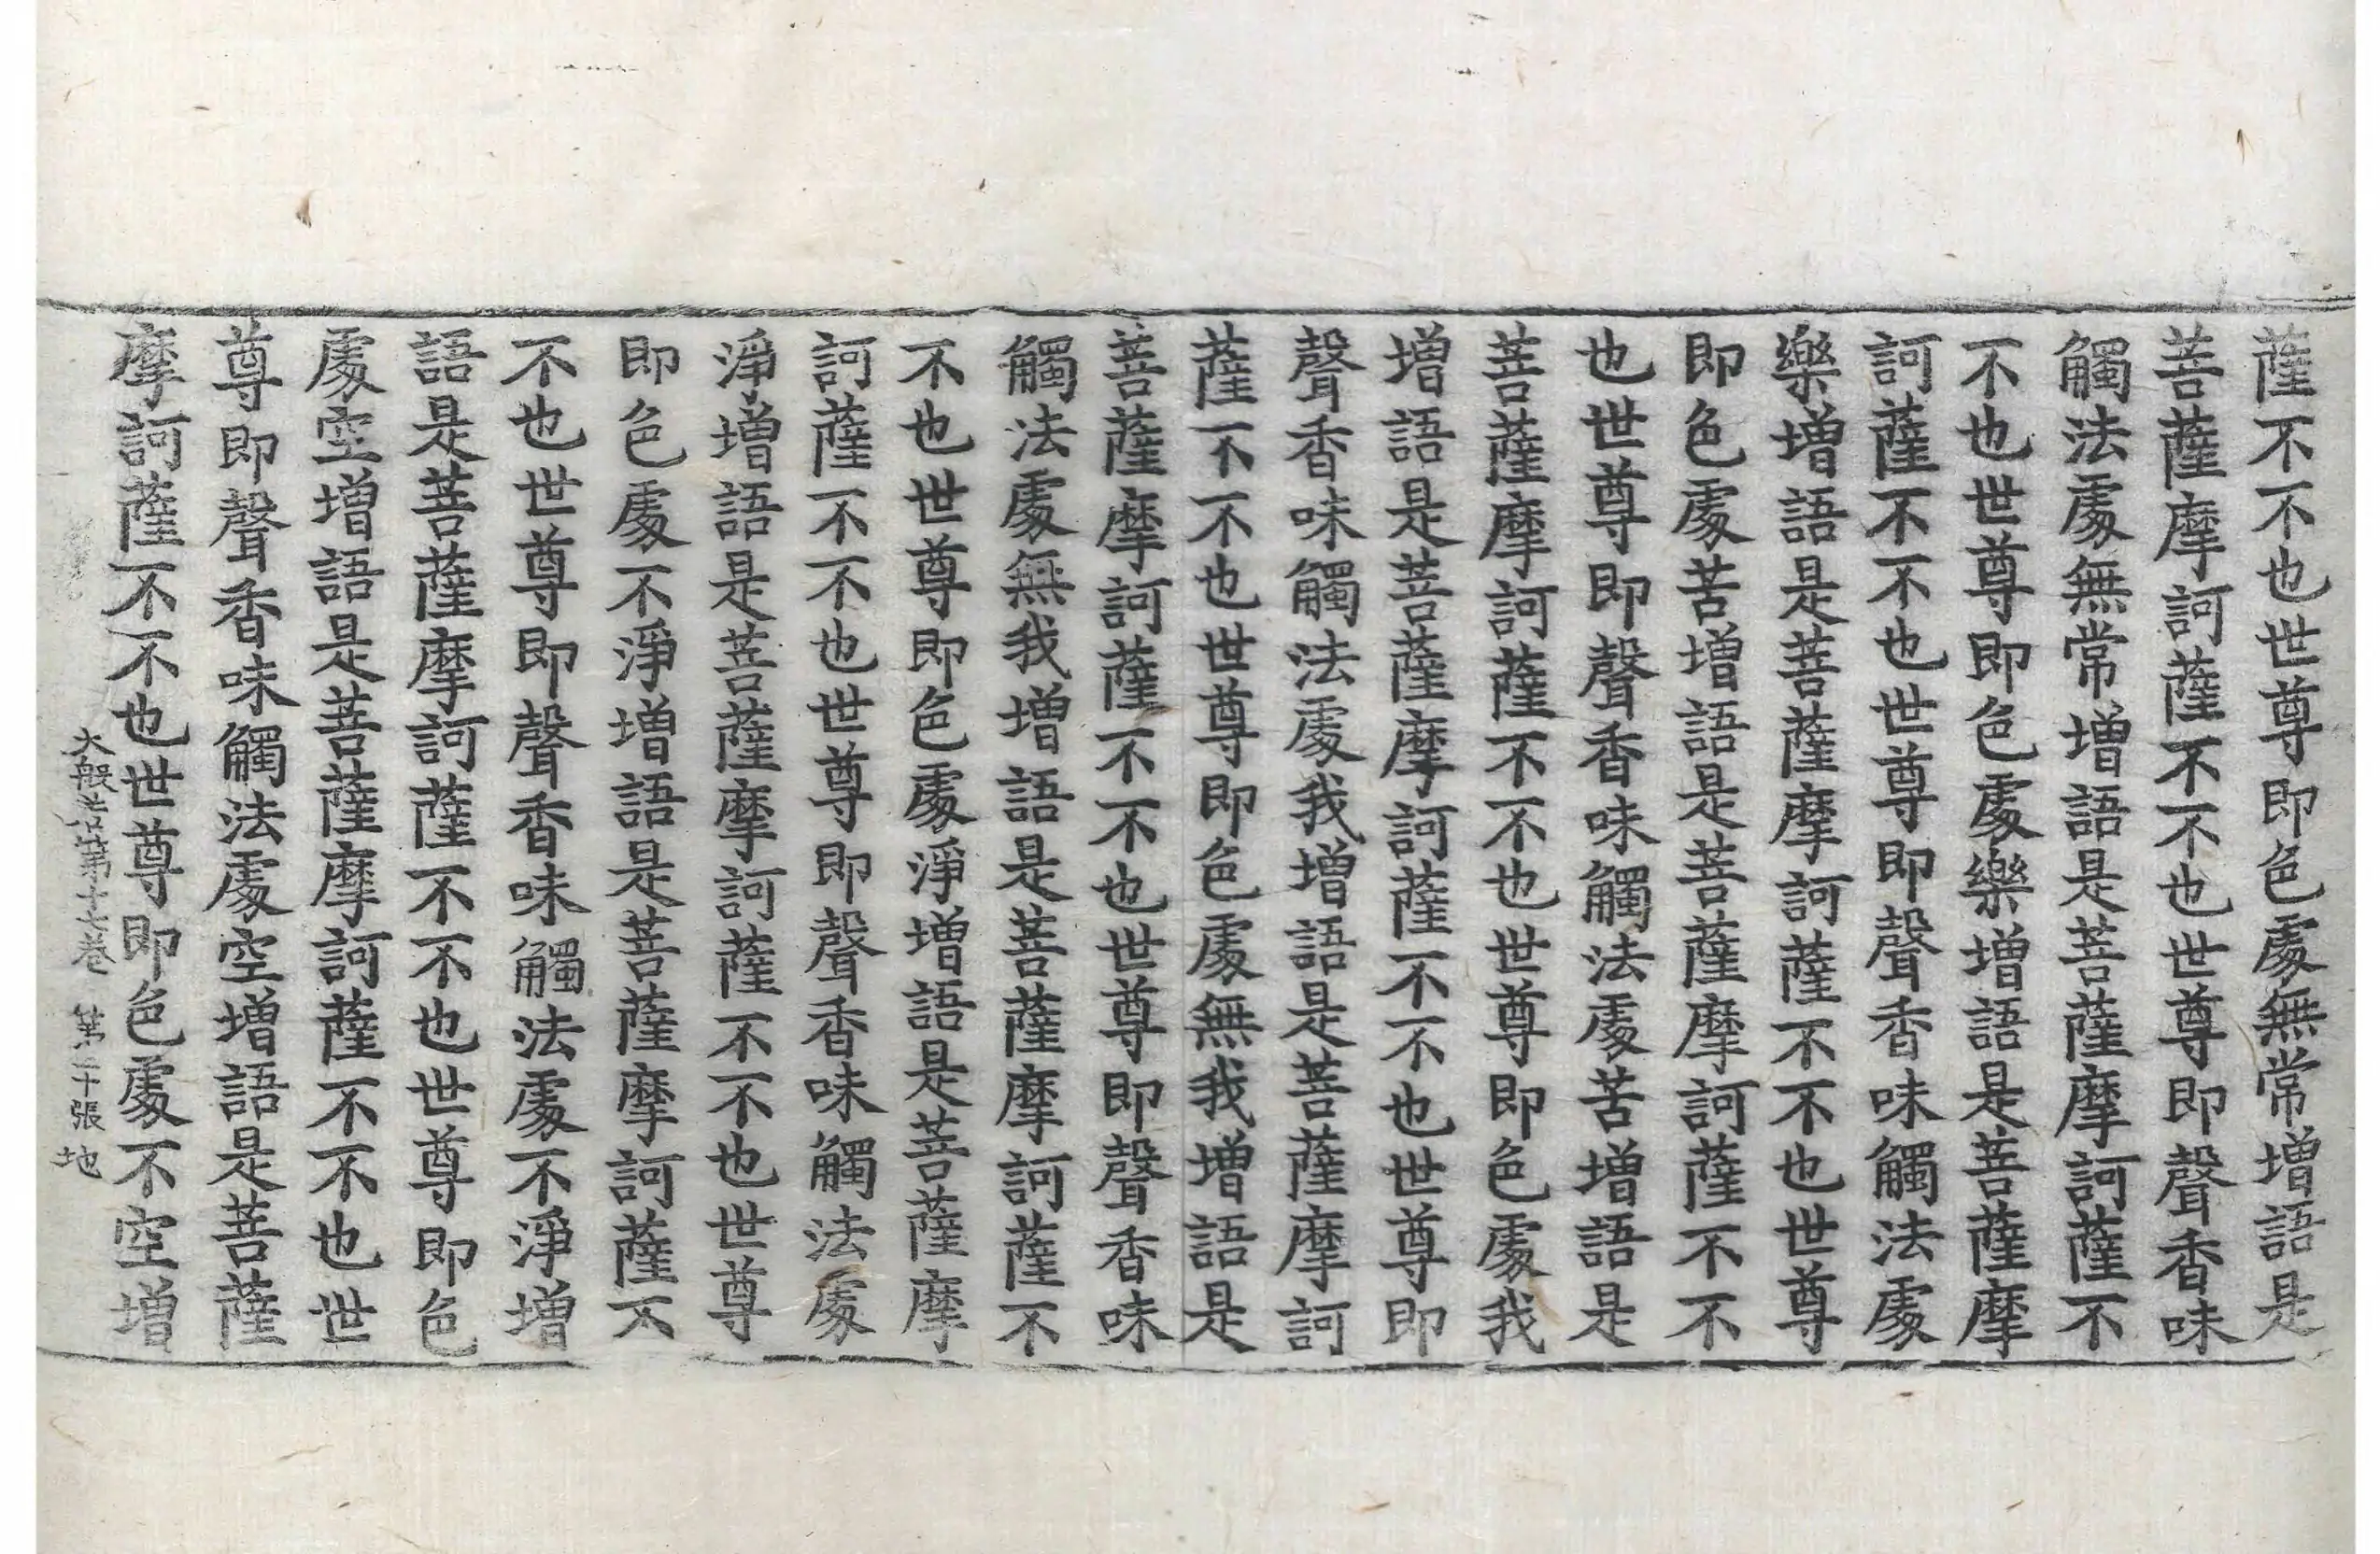 薩不不也世尊即色處無常增語是
菩薩摩訶薩不不也世尊即聲香味
觸法處無常增語是菩薩摩訶薩不
不也世尊即色處樂增語是菩薩摩
訶薩不不也世尊即聲香味觸法處
樂增語是菩薩摩訶薩不不也世尊
即色處苦增語是菩薩摩訶薩不不
也世尊即聲香味觸法處苦增語是
菩薩摩訶薩不不也世尊即色處我
增語是菩薩摩訶薩不不也世尊即
聲香味觸法處我增語是菩薩摩訶
薩不不也世尊即色處無我增語是
菩薩摩訶薩不不也世尊即聲香味
觸法處無我增語是菩薩摩訶薩不
不也世尊即色處淨增語是菩薩摩
訶薩不不也世尊即聲香味觸法處
淨增語是菩薩摩訶薩不不也世尊
即色處不淨增語是菩薩摩訶薩不
不也世尊即聲香味觸法處不淨增
語是菩薩摩訶薩不不也世尊即色
處空增語是菩薩摩訶薩不不也世
尊即聲香味觸法處空增語是菩薩
摩訶薩不不也世尊即色處不空增
大般若第十七卷 第二十張 地